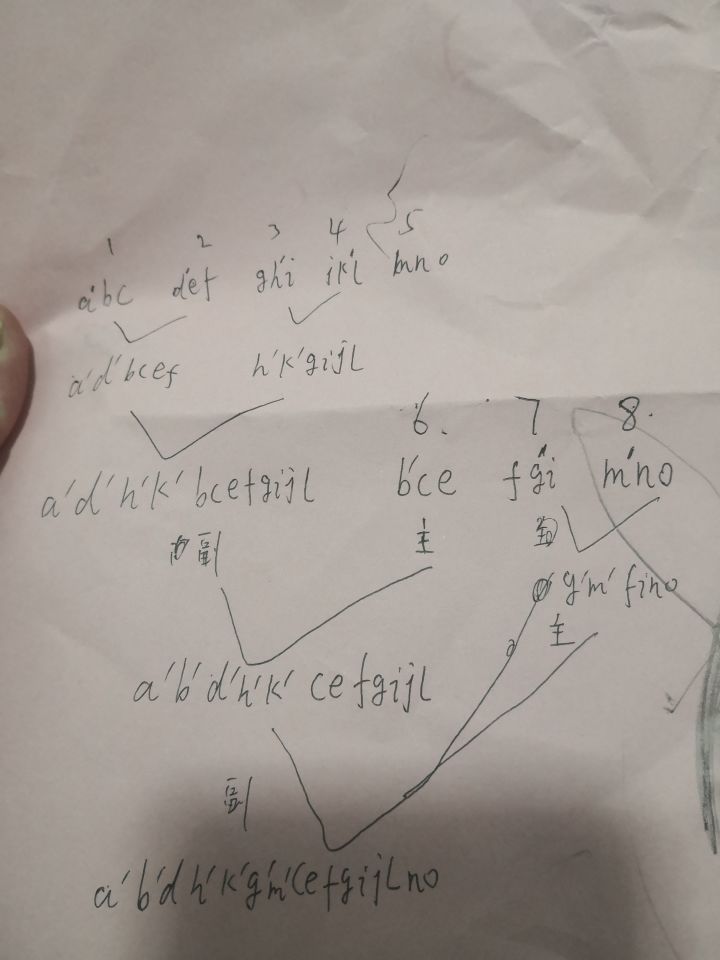 1 2 3 4 5
a'bc d'ef gh'i ik'l mno
a'd'bcef h'k'gijl
6. 7 8.
a'd'h'k'bcefgijl b'ce fg'i m'no
副 主
g'm'fino
主
a'b'd'h'k' cefgijl
副
a'b'd h'k'g'm'cefgijlno